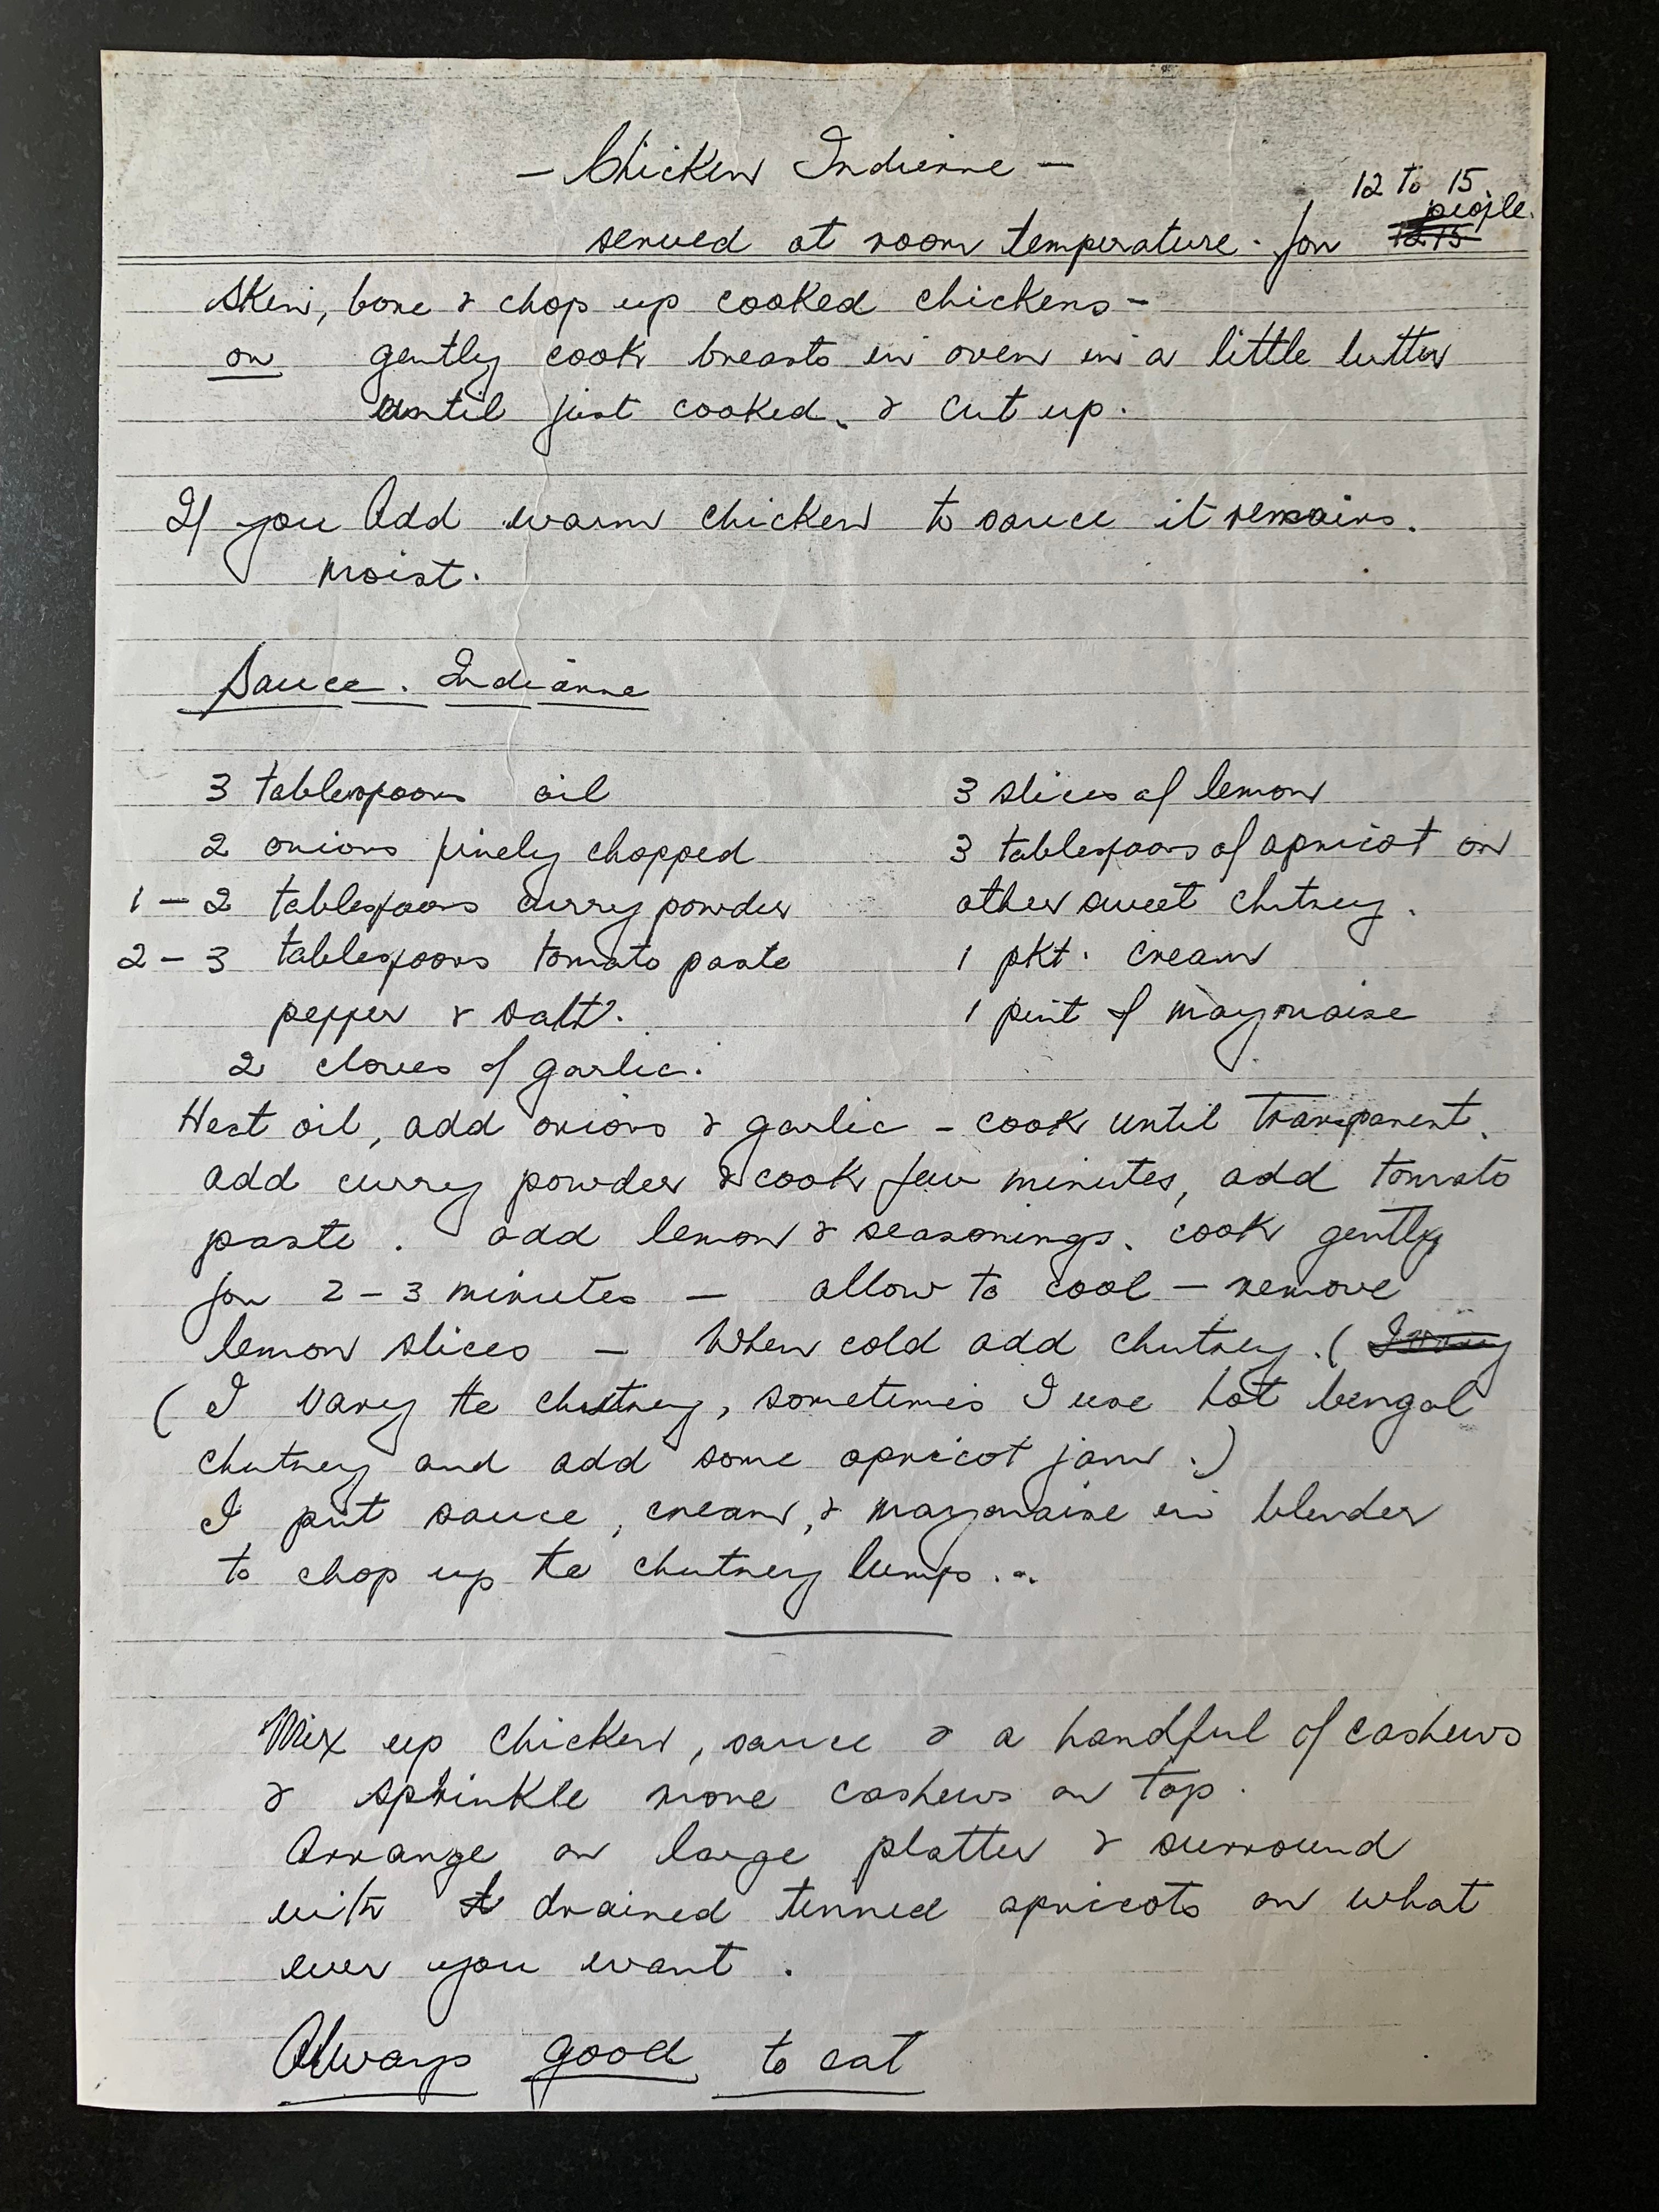 — Chicken Indienne —
12 to 15
people.
served at room temperature. for 12 15
Skin, bone & chop up cooked chickens -
or gently cook breasts in oven in a little butter
until just cooked, & cut up.
If you Add warm chicken to sauce it remains.
moist.
Sauce. Indianne
3 tablespoons oil
2 onions finely chopped
1 - 2 tablespoons curry powder
2 - 3 tablespoons tomato paste
pepper & salt.
2 cloves of garlic.
3 slices of lemon
3 tablespoons of apricot or
other sweet chutney.
1 pkt. cream
1 pint of mayonaise
Heat oil, add onions & garlic - cook until transparent.
add curry powder & cook few minutes, add tomato
paste. add lemon & seasonings. cook gently
for 2 - 3 minutes — allow to cool — remove
lemon slices — When cold add chutney. ( I vary
( I vary the chutney, sometimes I use hot bengal
chutney and add some apricot jam.)
I put sauce, cream, & mayonaise in blender
to chop up the chutney lumps...
Mix up chicken, sauce & a handful of cashews
& sprinkle more cashews on top.
Arrange on large platter & surround
with drained tinned apricots or what
ever you want.
Always good to eat